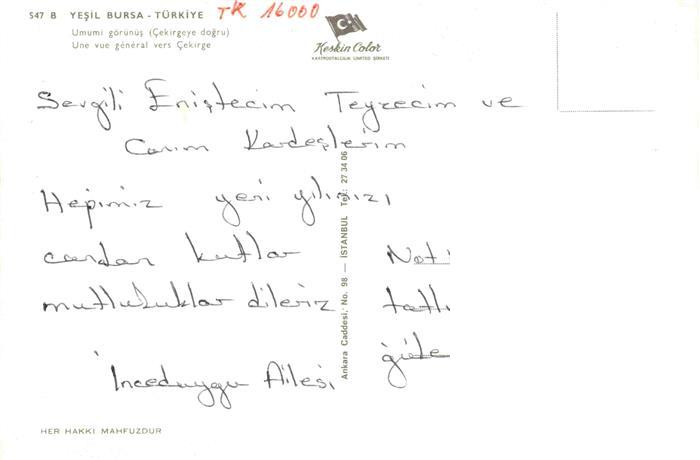 547 B YEŞİL BURSA - TÜRKİYE TK 16000
Umumi görünüş (Çekirgeye doğru)
Une vue général vers Çekirge
Keskin Color
KARTPOSTALCILIK LIMITED ŞİRKETİ
Sevgili Eniştecim Teyzecim ve
Canım Kardeşlerim
Hepimiz yeni yılınızı
candan kutlar
mutluluklar dileriz
İnceduygu Ailesi
Not:
tatlı
güle
Ankara Caddesi, No. 98 — İSTANBUL Tel: 27 34 06
HER HAKKI MAHFUZDUR